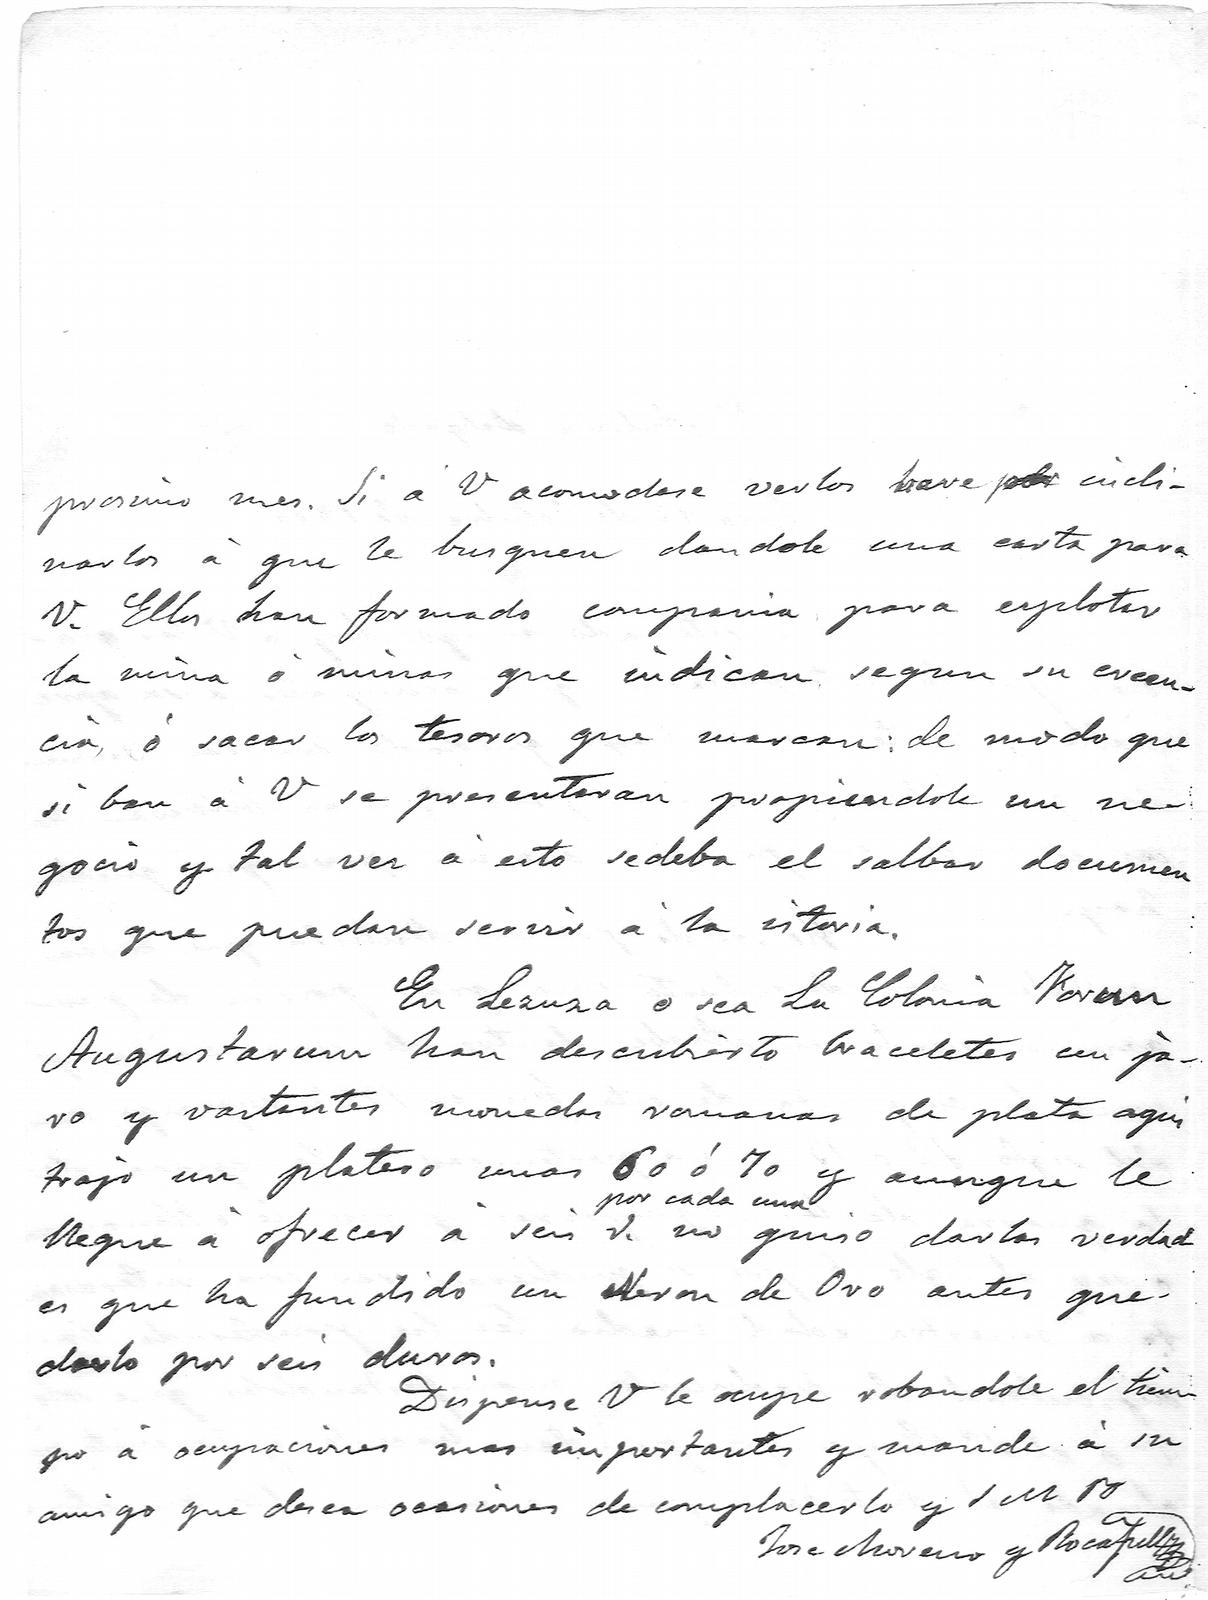 procsimo mes. Si á V acomodase verlos vere incli-
narlos à que le busquen dandole una carta para
V. Ellos han formado compania para esplotar
la mina ó minas que indican segun su creen-
cia, ó sacar los tesoros que marcan: de modo que
si ban à V se presentaran propiendole un ne-
gocio y tal vez à esto sedeba el salbar documen
tos que puedan servir à la istoria.
En Lezuza o sea La Colonia Forum
Augustarum han descubierto braceletes un ja-
ro y vastantes monedas romanas de plata aqui
trajo un platero unas 60 ó 70 y aunque le
llegue à ofrecer à seis r. por cada una no quiso darlas verdad
es que ha fundido un Neron de Oro antes que
darlo por seis duros.
Dispense V le ocupe robandole el tiem
po à ocupaciones mas importantes y mande à su
amigo que desea ocasiones de complacerlo y S M
Jose Moreno y Rocafull